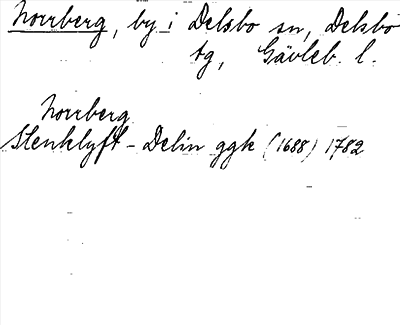 Norrberg, by i Delsbo sn, Delsbo
tg, Gävleb. l.
Norrberg
Stenklyft - Delin ggk (1688) 1782